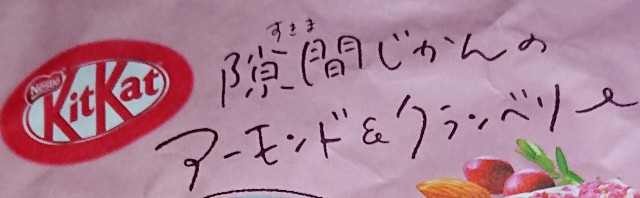 Nestlé
KitKat
すきま
隙間じかんの
アーモンド&クランベリー